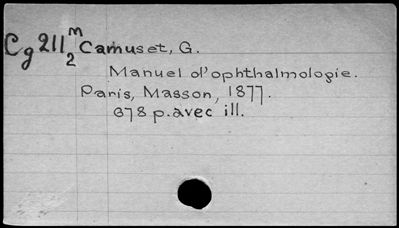 Cg 211 m 2 Camuset, G.
Manuel d'ophthalmologie.
Paris, Masson, 1877.
678 p. avec ill.